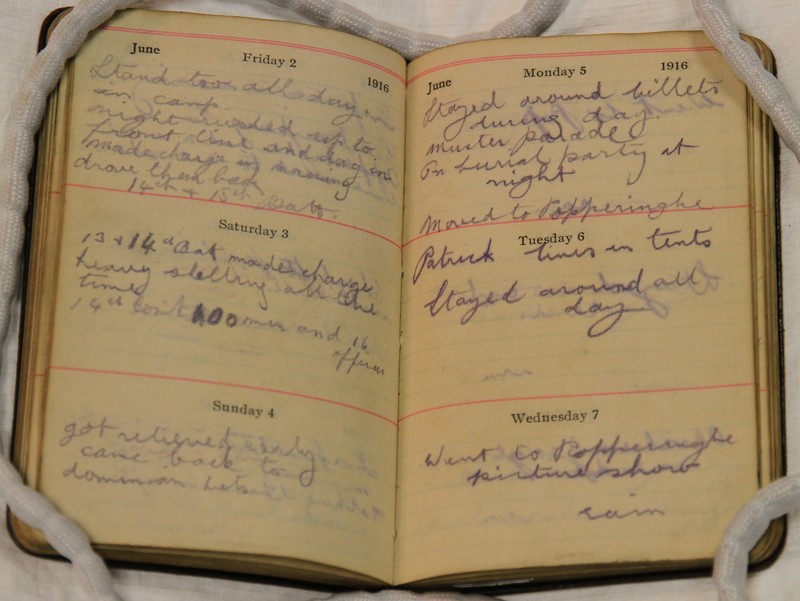 June Friday 2 1916
Stand too all day
in camp.
night rushed up to
front line and dug in
made charge in morning
drove them back
14th & 15th Batt.
Saturday 3
13 & 14th Bat made charge
heavy shelling all the
time
14th lost 400 men and 16
officers
Sunday 4
got relieved early
came back to
dominion
June Monday 5 1916
Stayed around billets
during day.
muster parade
On burial party at
night
Moved to Popperinghe
Tuesday 6
Patrick lines in tents
Stayed around all
day
Wednesday 7
Went to Popperinghe
picture show
rain